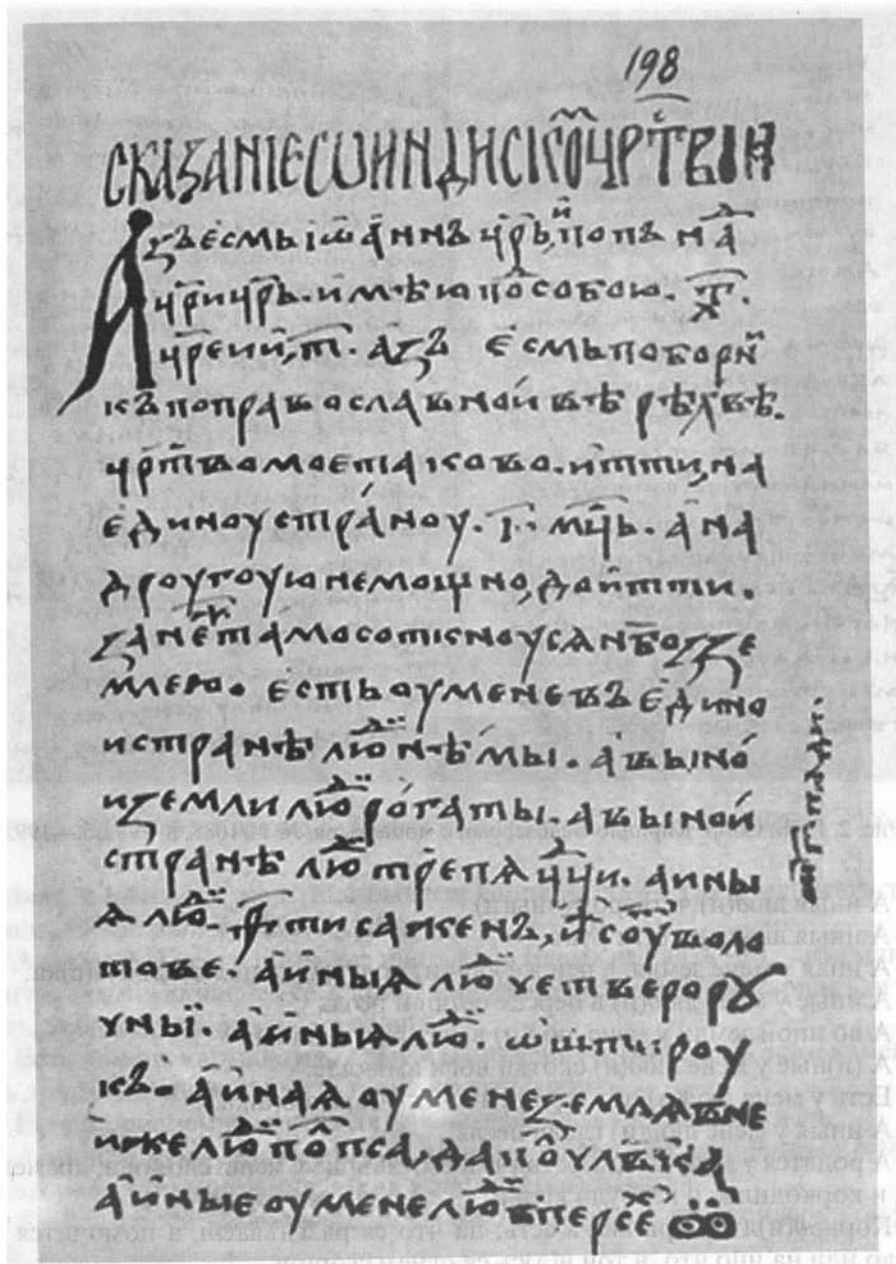 198
СКАЗАНІЕ Ѡ ИНДИСКО ЦРТВІИ
Азъ есмь іѡаннъ црь и попъ на
цри црь. имѣю по собою. ҂г҃.
цреи и, т҃. азъ есмь поборни
къ по правословнои вѣрѣ хвѣ.
црт҃во мое таково. итти, на
единоу страноу. і҃. мц҃ь. а на
дроугоую немощно, доитти.
зане тамо соткноуся нб҃о з зе
млею. есть оу мене въ едино
и странѣ лю нѣмы. а въ ино
и земли лю рогаты. а въ иной
странѣ лю трепядци. а ины
я лю. ф҃ти сажень, и соу воло
тове. а иныя лю четверору
чны. а иныя лю. о шти роу
къ. а иная оу мене земля в не
иже лю по пса, да по улвѣка
а иные оу мене лю в персѣ ꙭ